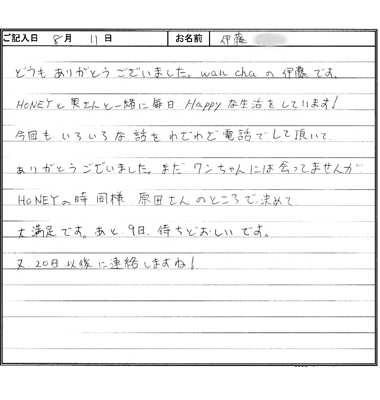 ご記入日 8月 11日 お名前 伊藤
どうもありがとうございました。wan chaの伊藤です。
HONEYと奥さんと一緒に毎日Happyな生活をしています!
今回もいろいろな話をわざわざ電話でして頂いて
ありがとうございました。まだワンちゃんには会ってませんが
HONEYの時同様 原田さんのところで決めて
大満足です。あと9日、待ちどおしいです。
又20日以後に連絡しますね!